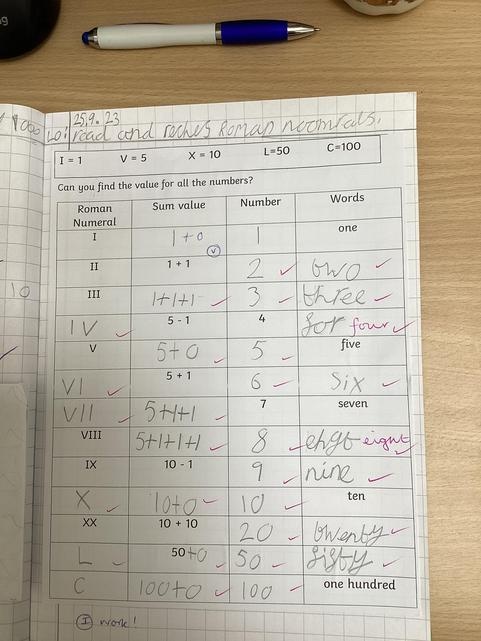 25.9.23
LO: read and reches Roman noomrals.
I = 1 V = 5 X = 10 L=50 C=100
Can you find the value for all the numbers?
Roman Numeral Sum value Number Words
I 1+0 1 one
V
II 1 + 1 2 two
III 1+1+1 3 three
IV 5 - 1 4 for four
V 5+0 5 five
VI 5 + 1 6 six
VII 5+1+1 7 seven
VIII 5+1+1+1 8 ehgt eight
IX 10 - 1 9 nine
X 10+0 10 ten
XX 10 + 10 20 twenty
L 50+0 50 fifty
C 100+0 100 one hundred
I work!
10